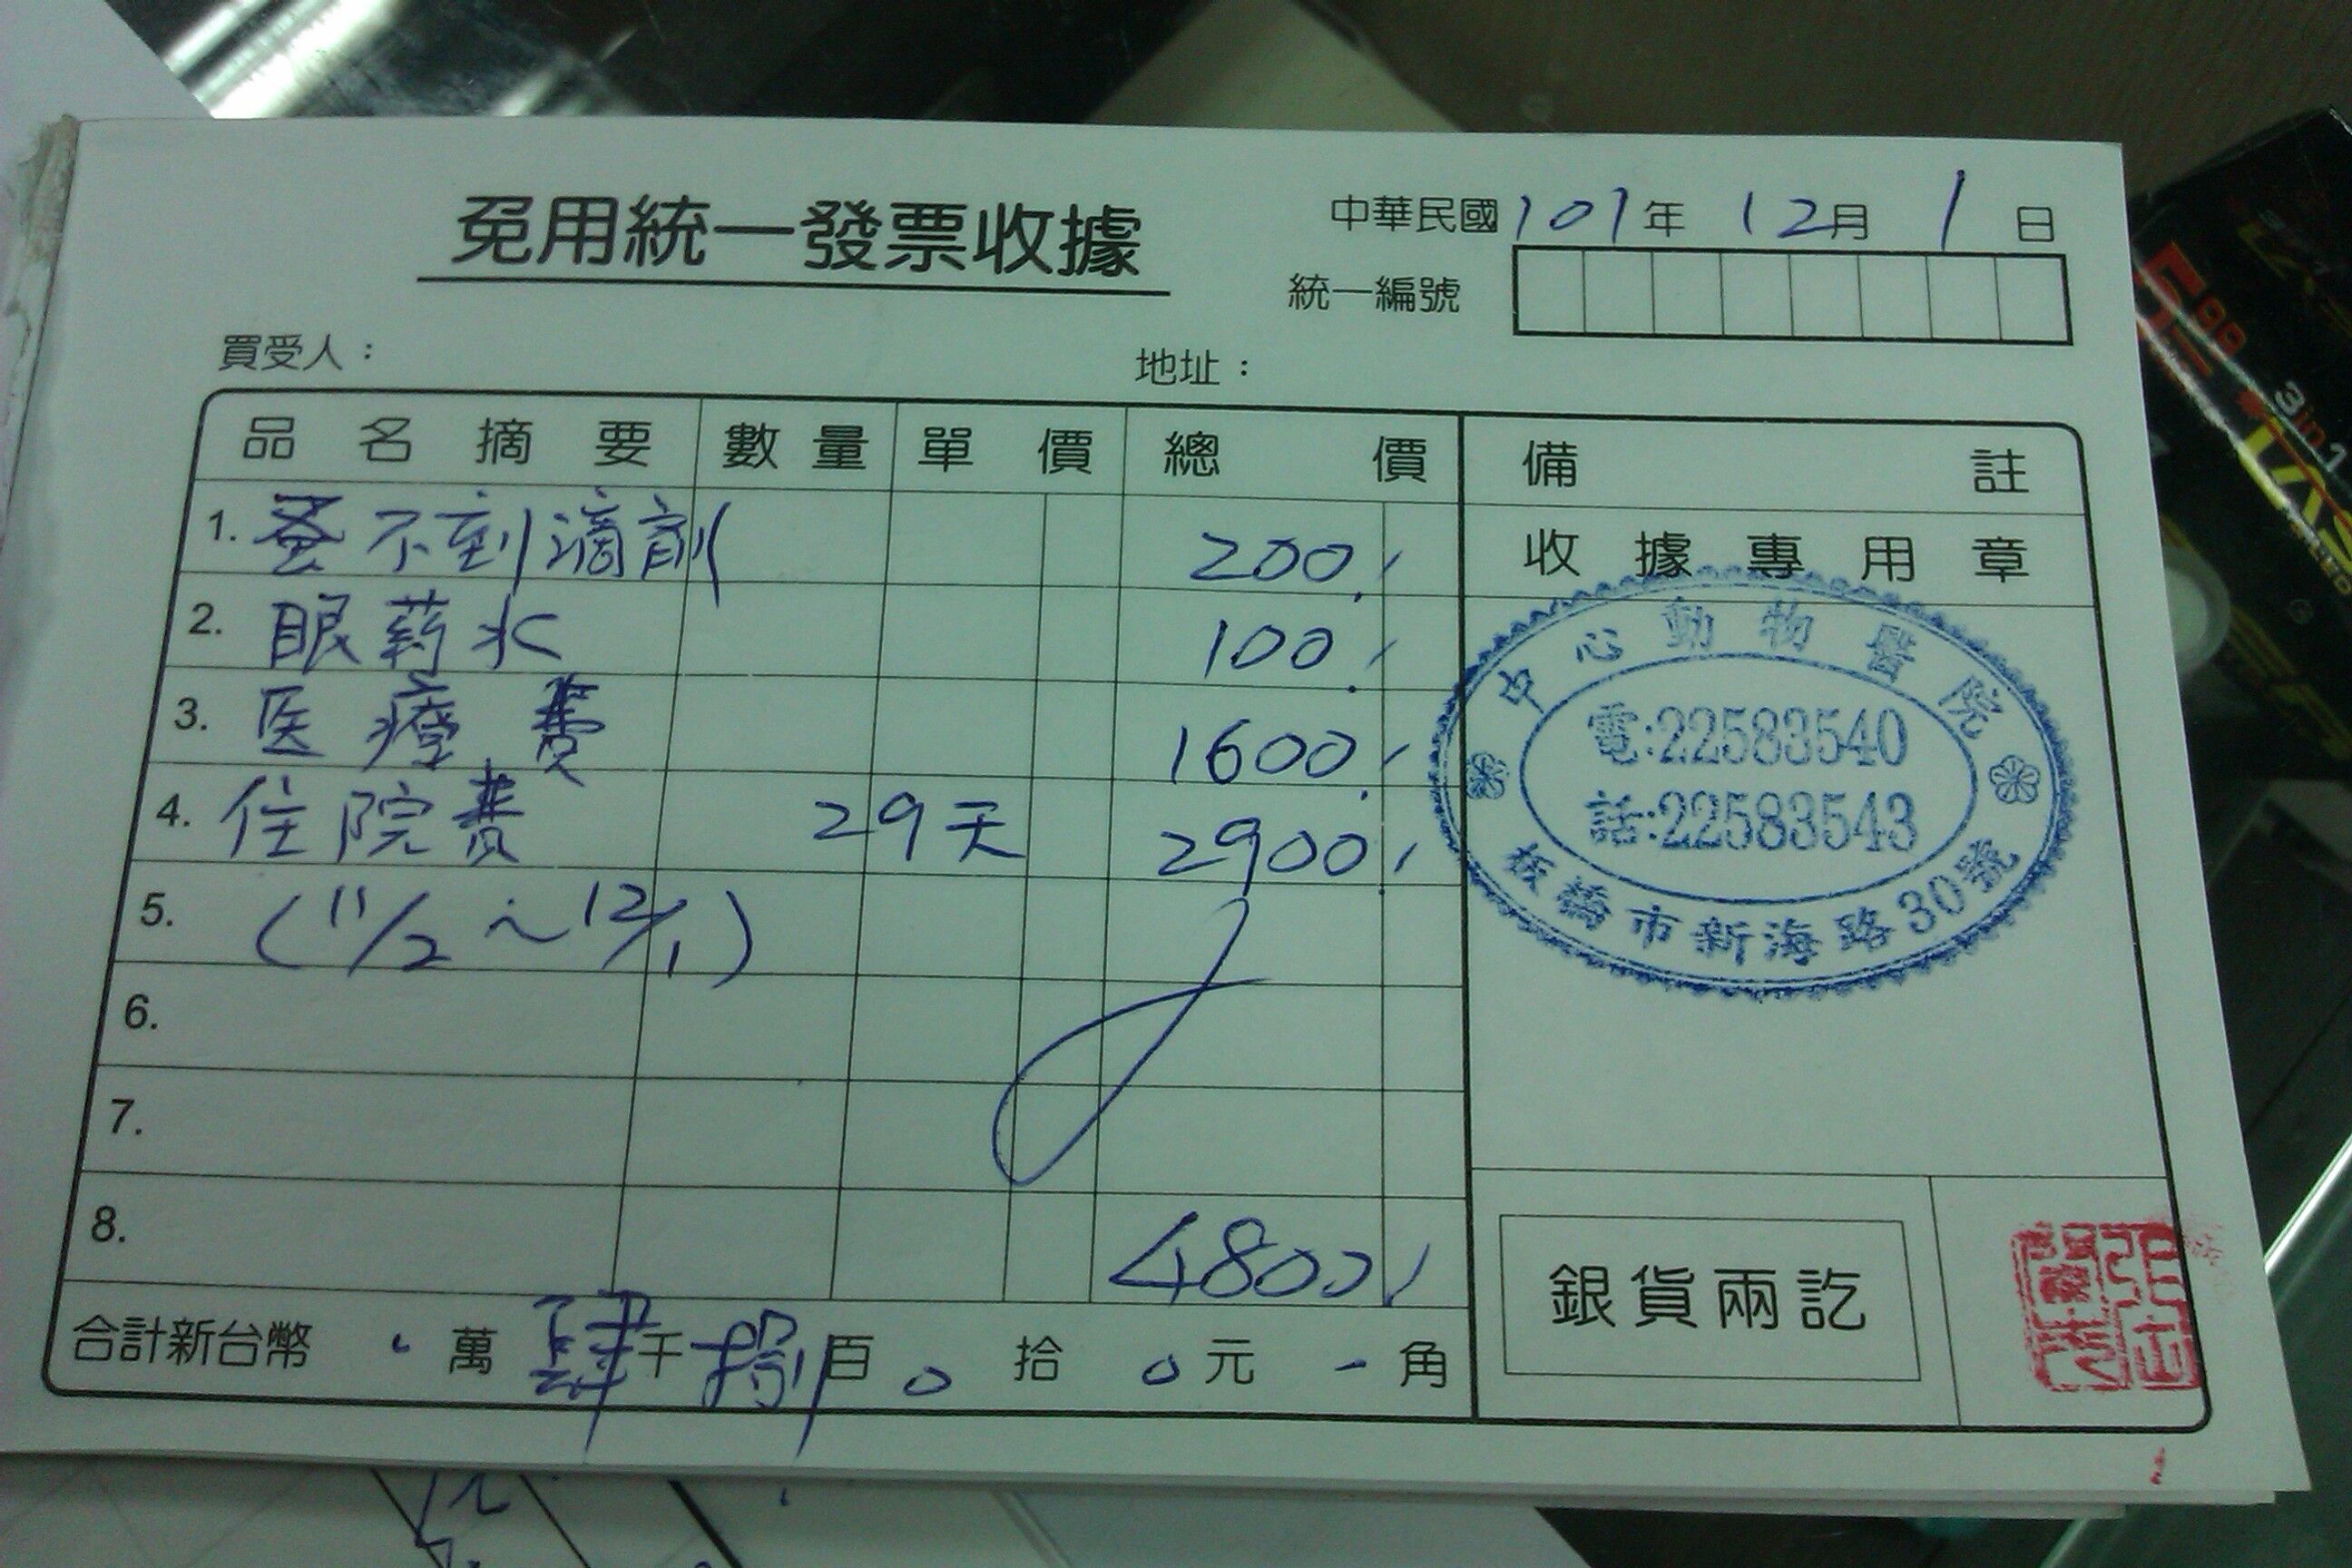 免用統一發票收據
中華民國101年12月1日
統一編號
買受人：
地址：
品名摘要 數量 單價 總價 備註
1. 蚤不到滴劑 200
收據專用章
2. 眼葯水 100
3. 医療費 1600
4. 住院費 29天 2900
5. (11/2～12/1)
6.
7.
8. 4800
中心動物醫院
電:22583540
話:22583543
板橋市新海路30號
合計新台幣 萬肆千捌百0拾0元-角
銀貨兩訖
3in1